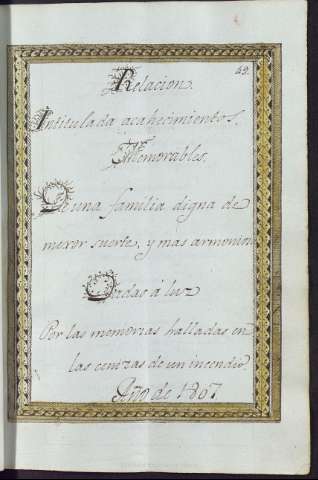 49.
Relacion.
Intitulada acahecimientos.
Memorables,
De una familia digna de
mexor suerte, y mas armonion
Dadas á luz
Por las memorias halladas en
las cenizas de un incendio.
Año de 1807